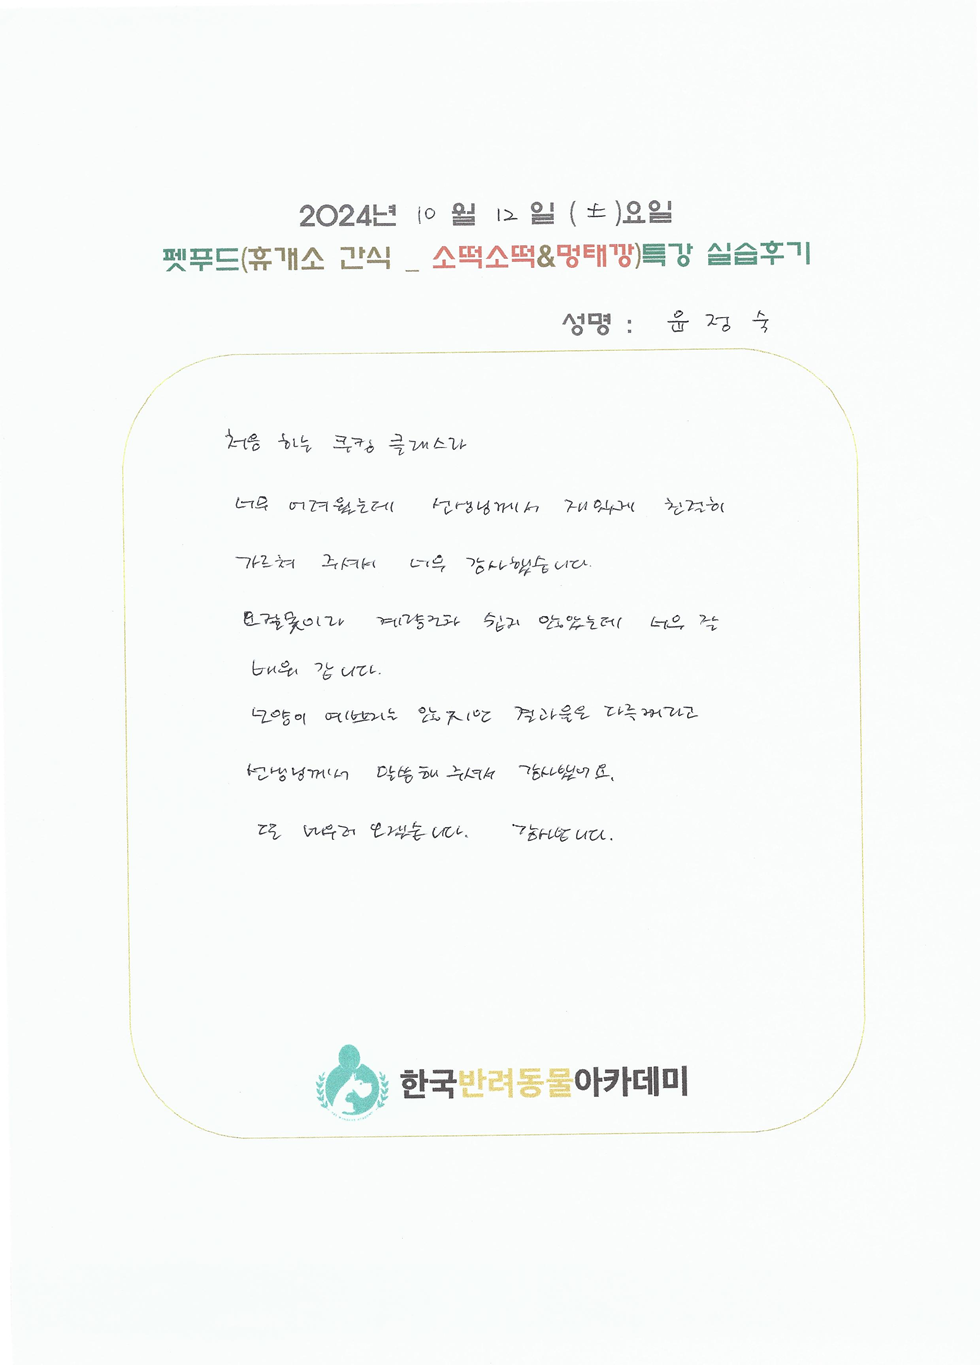 2024년 10 월 12 일 (土)요일
펫푸드(휴개소 간식 _ 소떡소떡&멍태깡)특강 실습후기
성명 : 윤정숙
처음 하는 쿠킹 클래스라
너무 어려웠는데 선생님께서 재밌게 친절히
가르쳐 주셔서 너무 감사했습니다.
요알못이라 계량조차 쉽지 않았는데 너무 잘
배워 갑니다.
모양이 예쁘지는 않지만 결과물은 다를꺼라고
선생님께서 말씀해 주셔서 감사했어요.
또 배우러 오겠습니다. 감사합니다.
한국반려동물아카데미